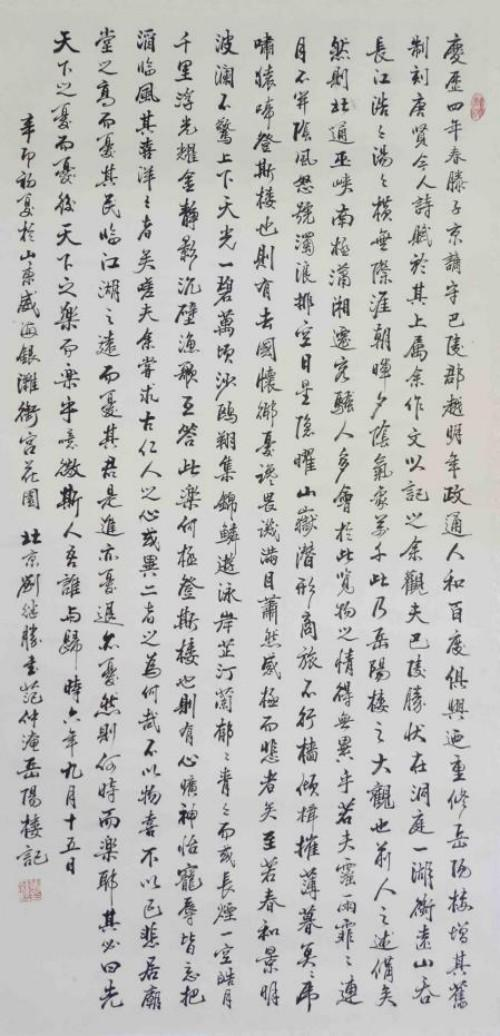 慶歷四年春滕子京謫守巴陵郡越明年政通人和百度俱興迺重修岳陽樓增其舊
制刻唐賢今人詩賦於其上屬余作文以記之余觀夫巴陵勝狀在洞庭一湖銜遠山吞
長江浩々湯々橫無際涯朝暉夕陰氣象萬千此乃岳陽樓之大觀也前人之述備矣
然則北通巫峽南極瀟湘遷客騷人多會於此覽物之情得無異乎若夫霪雨霏々連
月不開陰風怒號濁浪排空日星隱曜山嶽潛形商旅不行檣傾楫摧薄暮冥々虎
嘯猿啼登斯樓也則有去國懷鄉憂讒畏譏滿目蕭然感極而悲者矣至若春和景明
波瀾不驚上下天光一碧萬頃沙鷗翔集錦鱗游泳岸芷汀蘭郁々青々而或長煙一空皓月
千里浮光耀金靜影沉璧漁歌互答此樂何極登斯樓也則有心曠神怡寵辱皆忘把
酒臨風其喜洋々者矣嗟夫余嘗求古仁人之心或異二者之為何哉不以物喜不以己悲居廟
堂之高而憂其民臨江湖之遠而憂其君是進亦憂退亦憂然則何時而樂耶其必曰先
天下之憂而憂後天下之樂而樂乎噫微斯人吾誰與歸時六年九月十五日
辛卯初夏於山東威海銀灘銜宮花園 北京劉继勝書范仲淹岳陽樓記